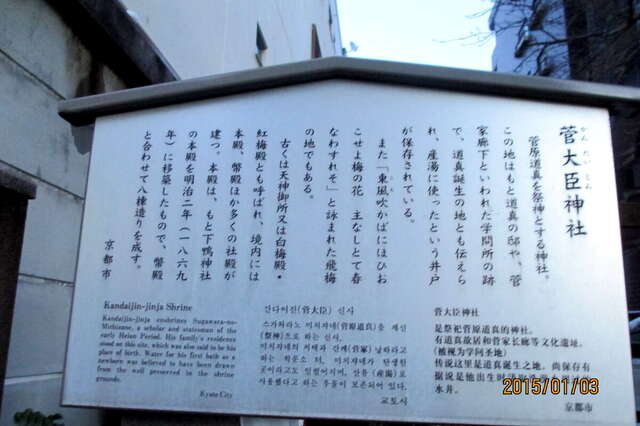 菅大臣神社
かんだいじん
菅原道真を祭神とする神社。
この地はもと道真の邸や、菅
家廊下といわれた学問所の跡
で、道真誕生の地とも伝えら
れ、産湯に使ったという井戸
が保存されている。
また「東風吹かばにほひお
こせよ梅の花 主なしとて春
なわすれそ」と詠まれた飛梅
の地でもある。
古くは天神御所又は白梅殿・
紅梅殿とも呼ばれ、境内には
本殿、幣殿ほか多くの社殿が
建つ。本殿は、もと下鴨神社
の本殿を明治二年(一八六九
年)に移築したもので、幣殿
と合わせて八棟造りを成す。
京都市
Kandaijin-jinja Shrine
Kandaijin-jinja enshrines Sugawara-no-
Michizane, a scholar and statesman of the
early Heian Period. His family's residence
stood on this site, which was also said to be his
place of birth. Water for his first bath as a
newborn was believed to have been drawn
from the well preserved in the shrine
grounds.
Kyoto City
간다이진(菅大臣) 신사
스가와라노 미치자네(菅原道真)를 제신
(祭神)으로 하는 신사.
미치자네의 저택과 간케(菅家) 낭하라고
하는 학문소 터, 미치자네가 탄생한
곳이라고도 전해지며, 산유(産湯)로
사용했다고 하는 우물이 보존되어 있다.
교토시
菅大臣神社
是祭祀菅原道真的神社。
有道真故居和菅家长廊等文化遗址。
(被视为学问圣地)
传说这里是道真诞生之地。尚保存有
据说是他出生时
水井。
京都市
2015/01/03